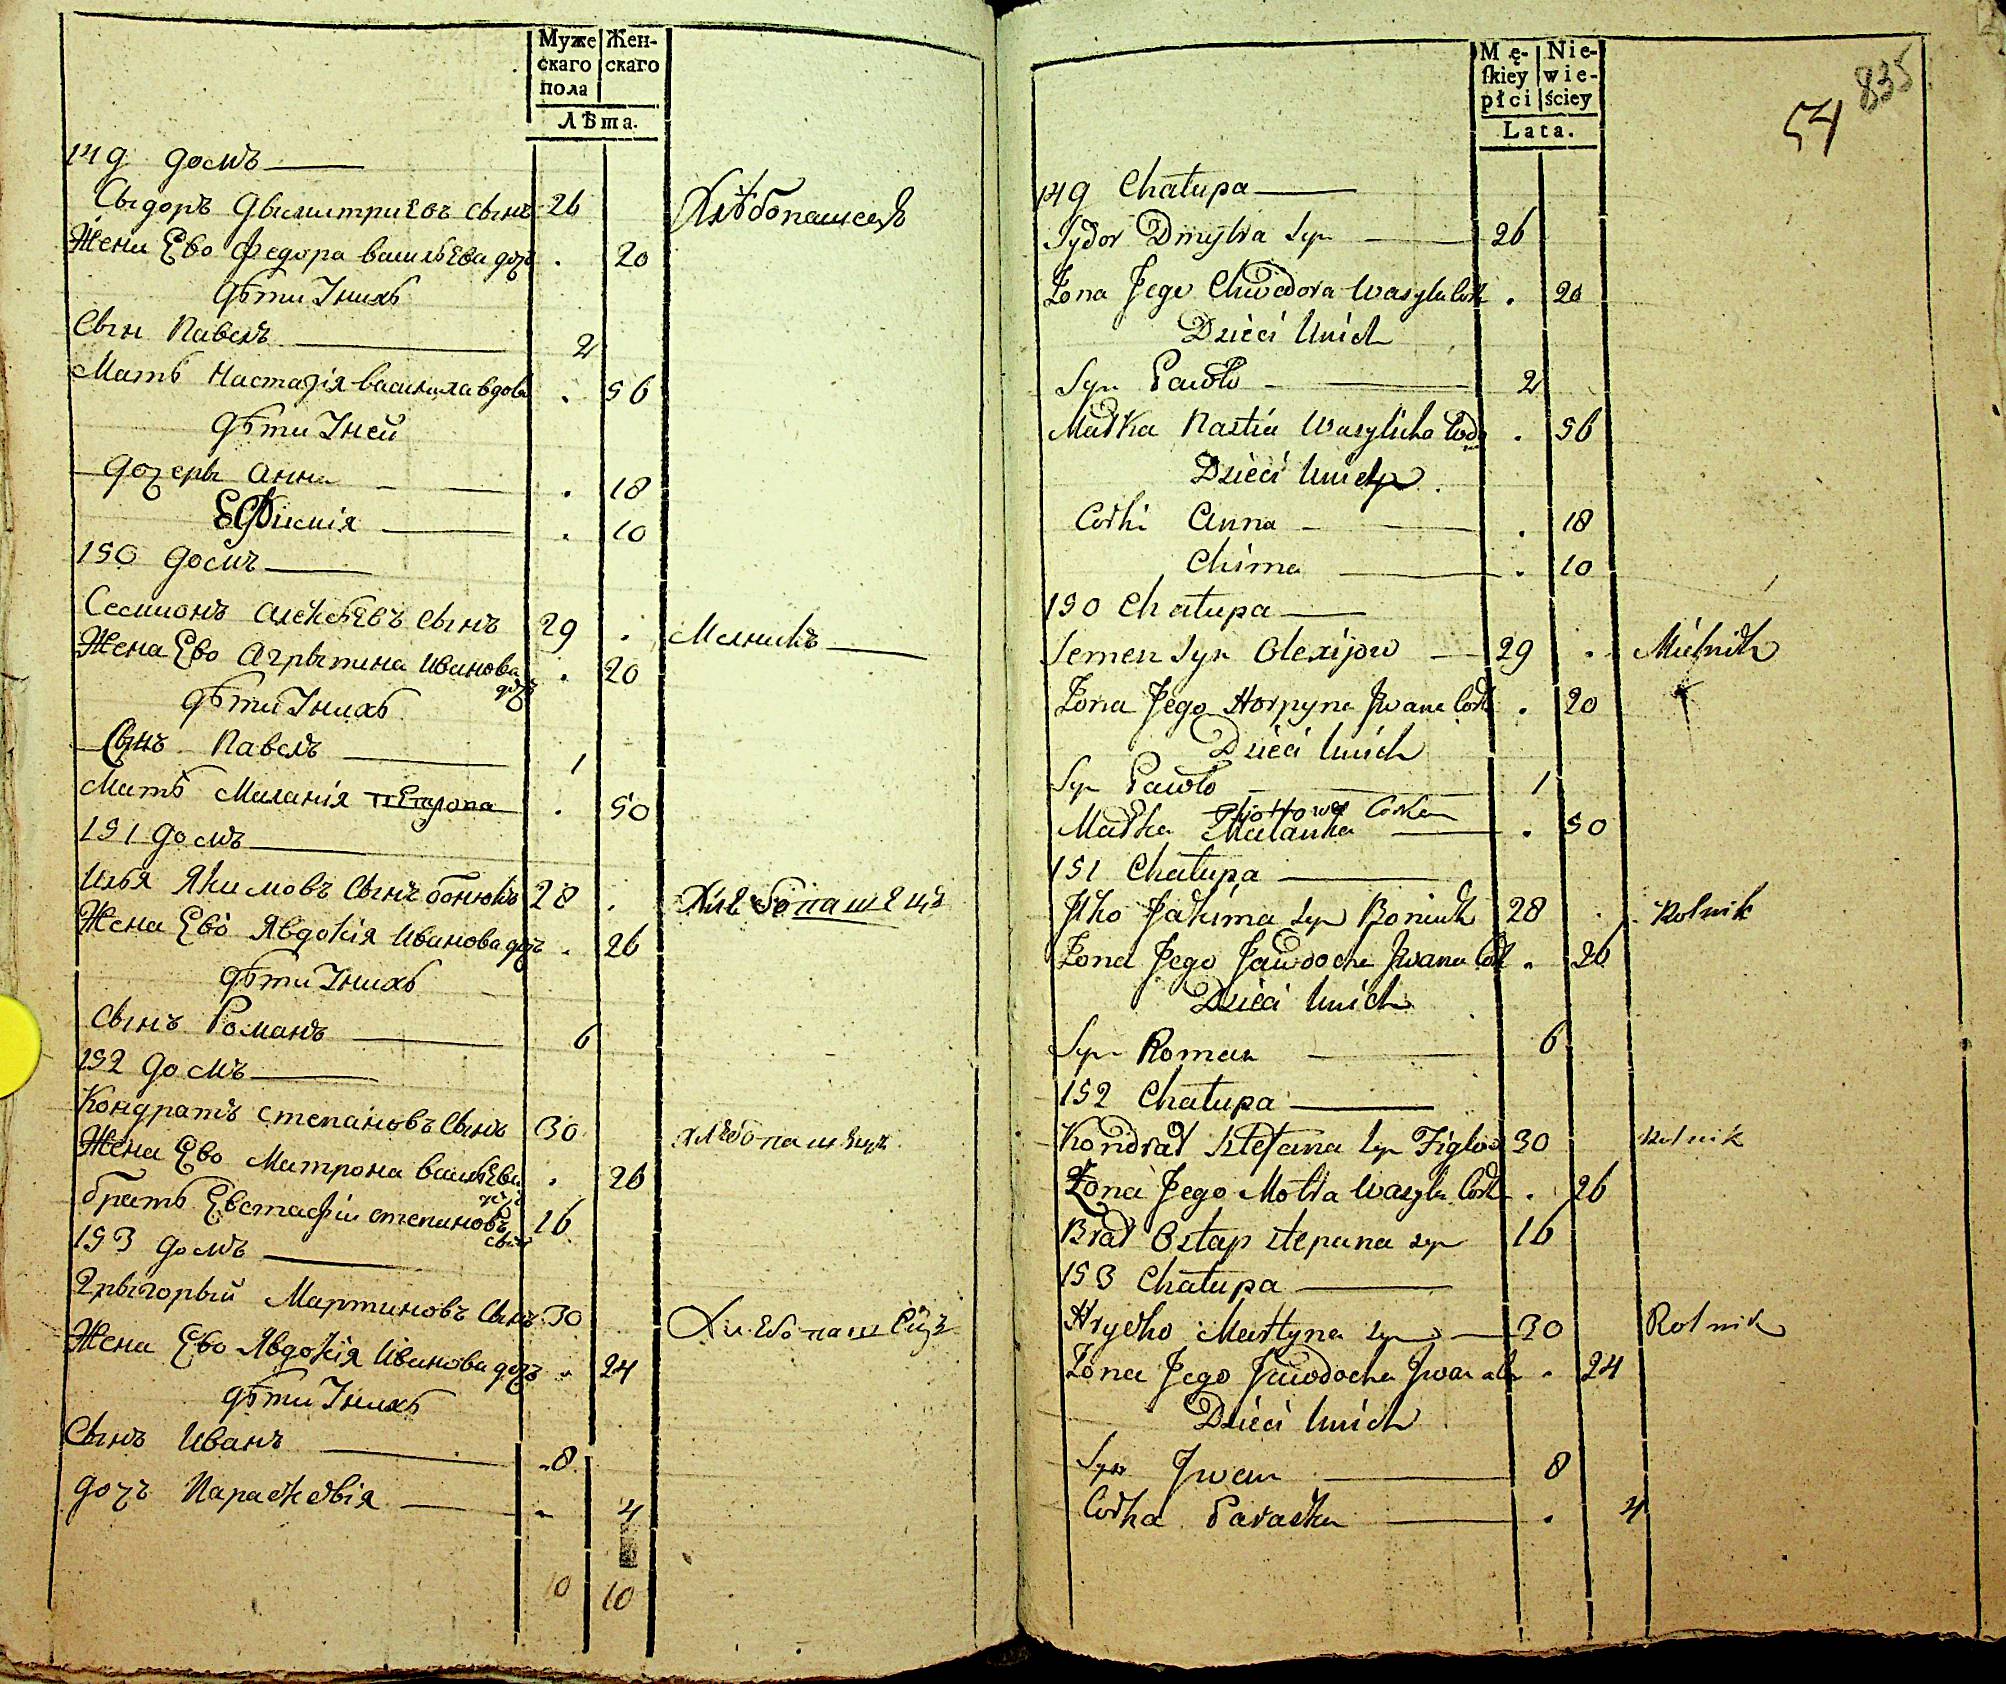 Муже Жен-
скаго скаго
пола
Лѣта.
149 домъ
Сыдоръ Двимитриевъ сынъ 26 Хлѣбопашецъ
Жена Ево Федора васильева дочь . 20
Дѣти Униxъ
Сын Павелъ 2
Мать Настазiя василиха вдова . 56
Дѣти Уней
дочеры Анна . 18
Ефимiя . 10
150 домъ
Семионъ Алексѣевъ сынъ 29 . Мелникъ
Жена Ево Агрыпина Иванова дочь . 20
Дѣти Унихъ
Сынъ Павелъ 1
Мать Маланiя . 50
151 домъ
Илья Якимовъ Сынъ бонюкъ 28 . Хлебопашецъ
Жена Ево Явдокiя Иванова дочь . 26
Дѣти Унихъ
Сынъ Романъ 6
152 домъ
Кондратъ степановъ Сынъ 30 хлѣбопашецъ
Жена Ево Матрона васильева дочь . 26
братъ Евстафiй степановъ сынъ 16
153 домъ
Грыгорый Мартиновъ Сынъ 30 Хлебопашецъ
Жена Ево Явдокiя Иванова дочь . 24
Дѣти Унихъ
Сынъ Иванъ 8
дочъ Параскевiя 4
10 10
Mę- Nie-
ſkiey wie-
płci ściey
Lata.
835
54
149 Chałupa
Sydor Dmytra Syn 26
Żona Jego Chwedora Wasyla Cork . 20
Dzieci Unich
Syn Pawło 2
Matka Nastia Wasylicha Wdo . 56
Dzieci Unich
Corki Anna . 18
Chima . 10
150 Chałupa
Semen Syn Olexijow 29 . Mielnik
Żona Jego Horpyna Jwana Cork . 20
Dzieci Unich
Syn Pawło 1
Corka
Matka Małanka . 50
151 Chałupa
Jlko Jakima Syn Boniuk 28 . Rolnik
Żona Jego Jawdocha Jwana Cork . 26
Dzieci Unich
Syn Roman 6
152 Chałupa
Kondrat Stefana Syn 30 Rolnik
Żona Jego Motra Wasyla Cork . 26
Brat Ostap Stepana Syn 16
153 Chałupa
Hryćko Martyna Syn 30 Rolnik
Żona Jego Jawdocha . 24
Dzieci Unich
Syn Jwan 8
Corka Paraska . 4